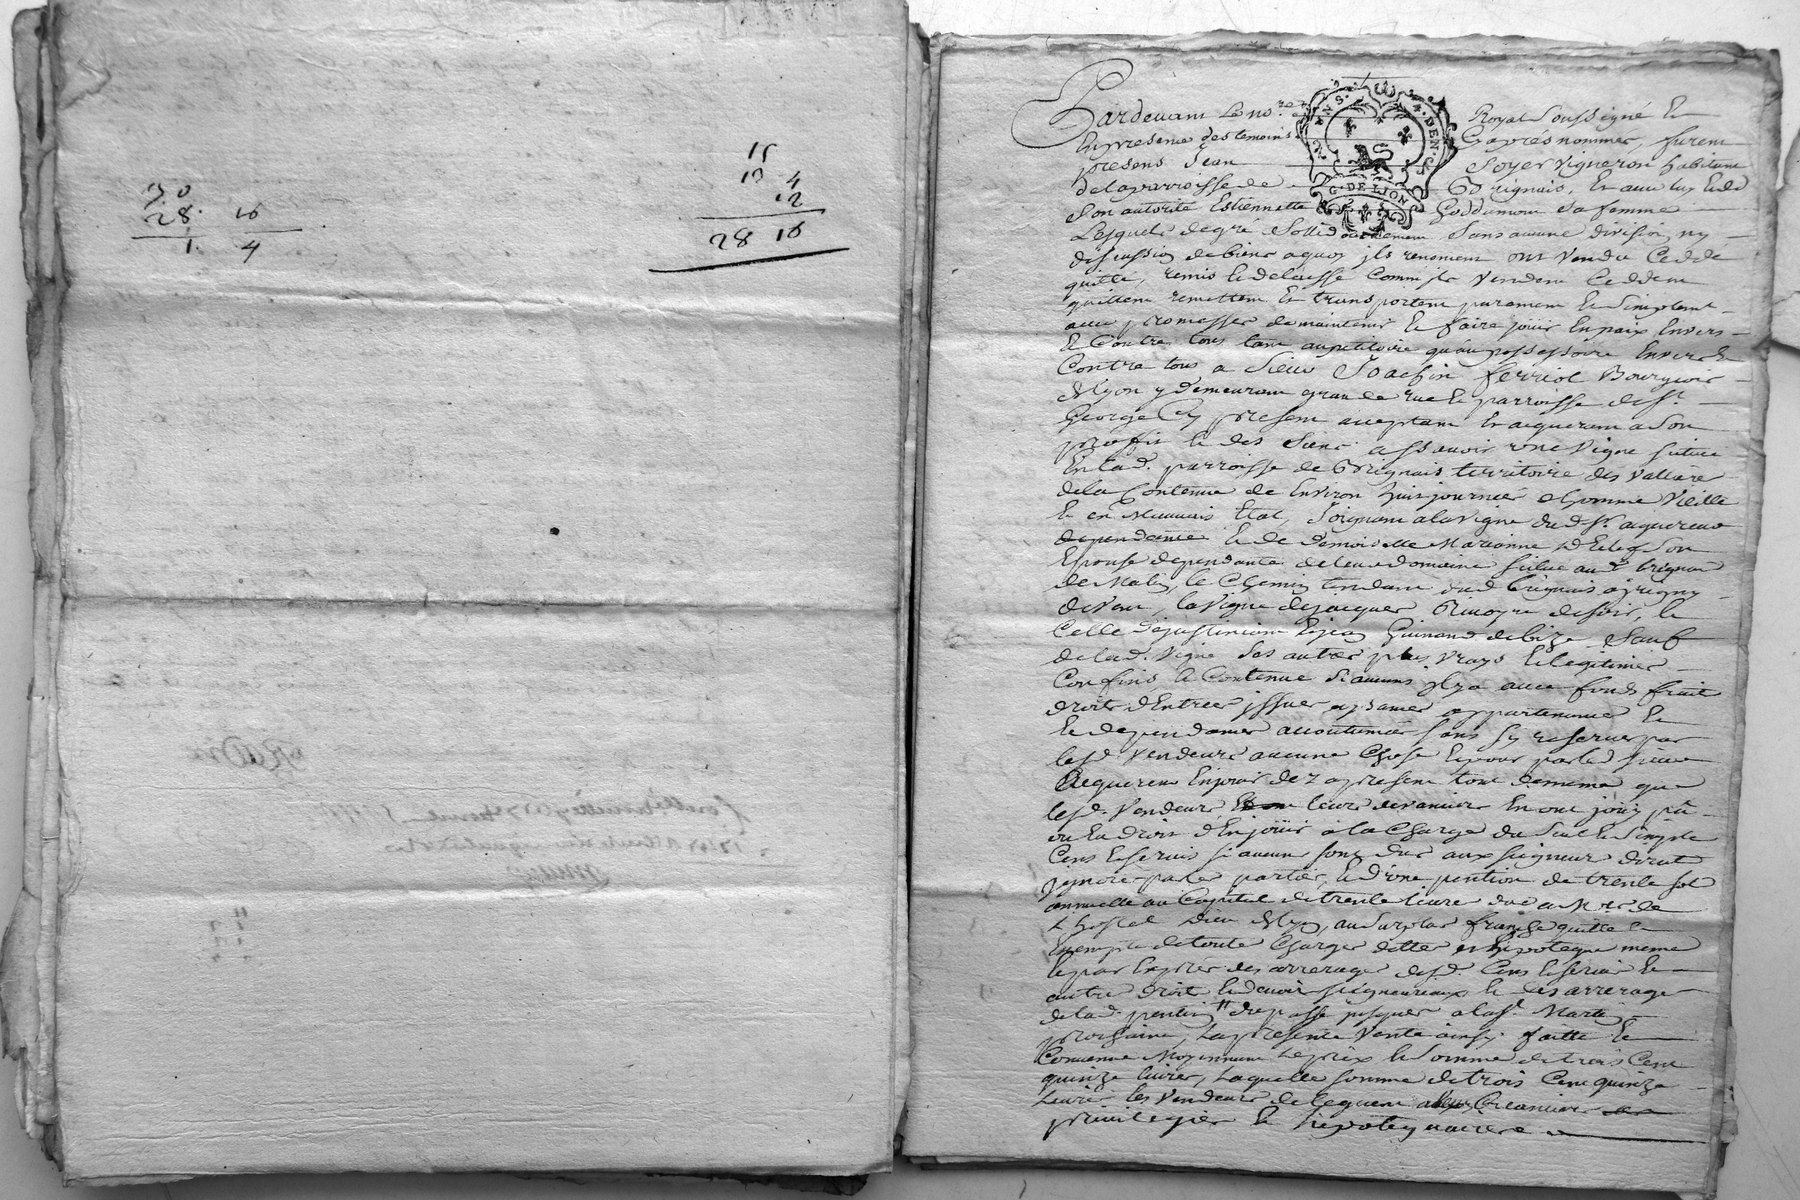 30
28. 16
1. 4
15
10 4
12
28 16
Pardevant le no.re Royal soussigné et
En presence des temoins Cy aprés nommes, furent
presens Jean Soyer vigneron habitant
de la parroisse de Brignais, Et avec luy & de
son autorité Estiennette Goddemom sa femme
Lesquels de gre solidairement sans aucune division ny
discussion de biens a quoy jls renoncent ont vendu Cedde
quitte, remis et delaisse Comm jls vendent Ceddent
quittent remettent Et transportent purement Et simplemt
avec promesses de maintenir Et faire jouir En paix Envers
Et Contre tous tant au petitoire qu'au possessoire Envers Et
Contre tous a sieur Joachin ferriol Bourgeois
de Lyon y demeurant grande rue Et parroisse de St.
George Cy present acceptant Et aquerant a son
proffit Et des siens assavoir une vigne situee
En lad. parroisse de Brignais territoire des valliere
de la Contenue de Environ huit journées d'homme vieille
Et en Mauvais Etat, Joignant a la vigne dud. Sr. aquereur
dependante Et de demoiselle Marianne son
Epouse dependante de leur domaine situé aud. brignais
de Matin, le Chemin tendant dud. Brignais a jrigny
de vent, la vigne de jacques de soir, Et
Celle de Guinand de bize sauf
de lad. vigne ses autres plus vrays Et legitimes
Confins Et Contenue si aucuns jl y a avec fonds fruits
droits d'Entrées jssues aysances appartenances Et
Et dependances accoutumées sans s'y reserver par
lesd. vendeurs aucune Chose Et pour par led. sieur
Aquereur En jouir dez a present tout de meme que
lesd. vendeurs Et leurs devanciers En ont jouy pû
ou eu droit d'En joüir a la Charge du seul Et simple
Cens Et servis si aucun sont dus aux seigneurs direct
jgnoré par les parties, Et d'une pention de trente sol
annuelle au Capital de trente livre due a Mrs de
L'hostel Dieu de Lyon, au surplus franche quitte Et
Exempte de toute Charges dettes et hipoteque meme
Et par Exprés des arrerages desd. Cens Et servis Et
autre droits Et devoir seigneureaux Et des arrerages
de lad. pention du passé jusques a la St. Martin
prochaine, La presente vente ainsy faitte Et
Convenue Moyennant Le prix Et somme de trois Cent
quinze livres, Laquelle somme de trois Cent quinze
Livres les vendeurs deleguent a leurs Creanciers
privilegiés Et hipotequaires